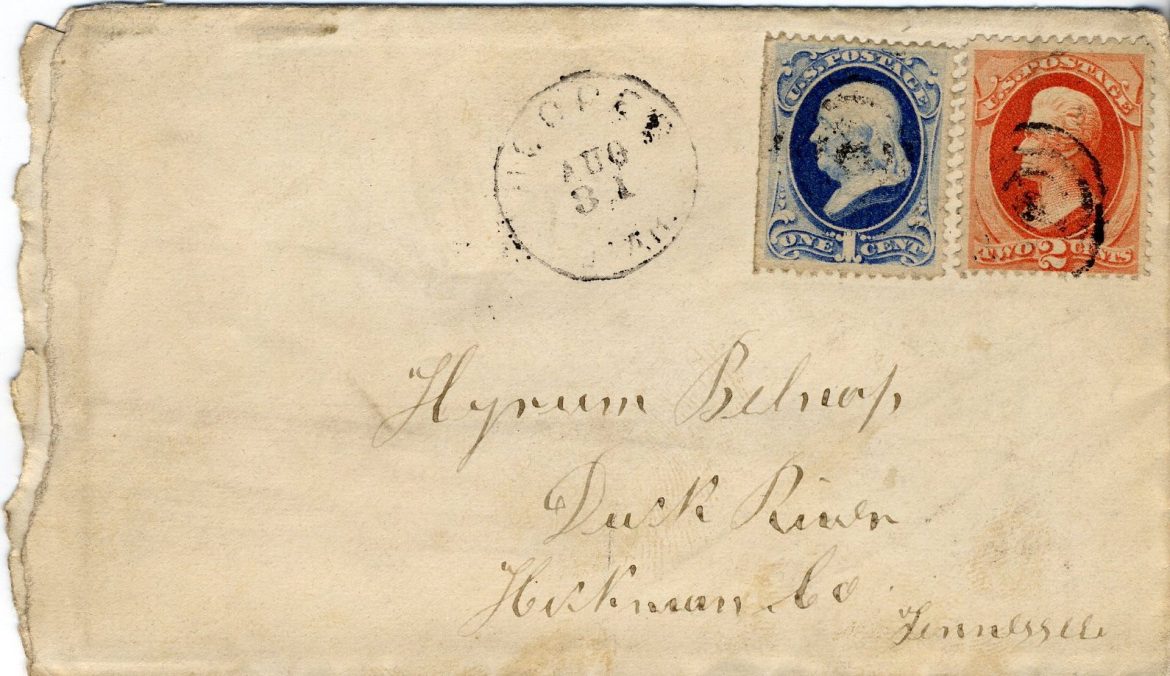 U.S. POSTAGE
ONE 1 CENT
U.S. POSTAGE
TWO 2 CENTS
HOOPER
AUG
31
UTAH.
Hyrum Belnap
Duck River
Hickman Co
Tennessee